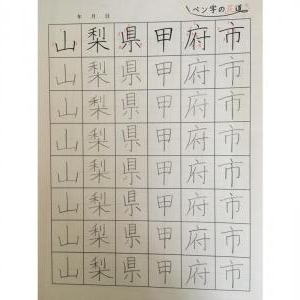 ペン字の花道
年 月 日
山梨県甲府市
山梨県甲府市
山梨県甲府市
山梨県甲府市
山梨県甲府市
山梨県甲府市
山梨県甲府市
山梨県甲府市